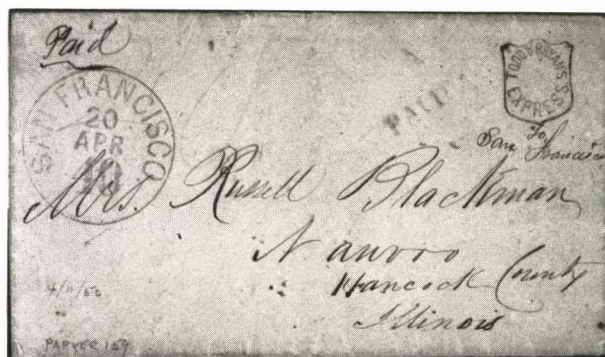 Paid
SAN FRANCISCO
20
APR
TODD & BRYAN'S
EXPRESS
PAID
To
San Francisco
Mrs. Russell Blackman
Nauvoo
Hancock County
Illinois
PARKER 159